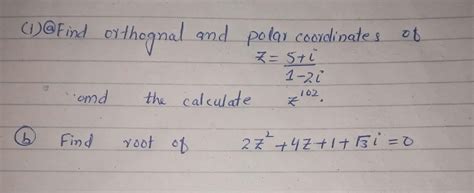 (1) ⓐ Find orthognal and polar coordinates of
z = 5+i / 1-2i
and the calculate z^102.
ⓑ Find root of 2z²+4z+1+√3 i = 0